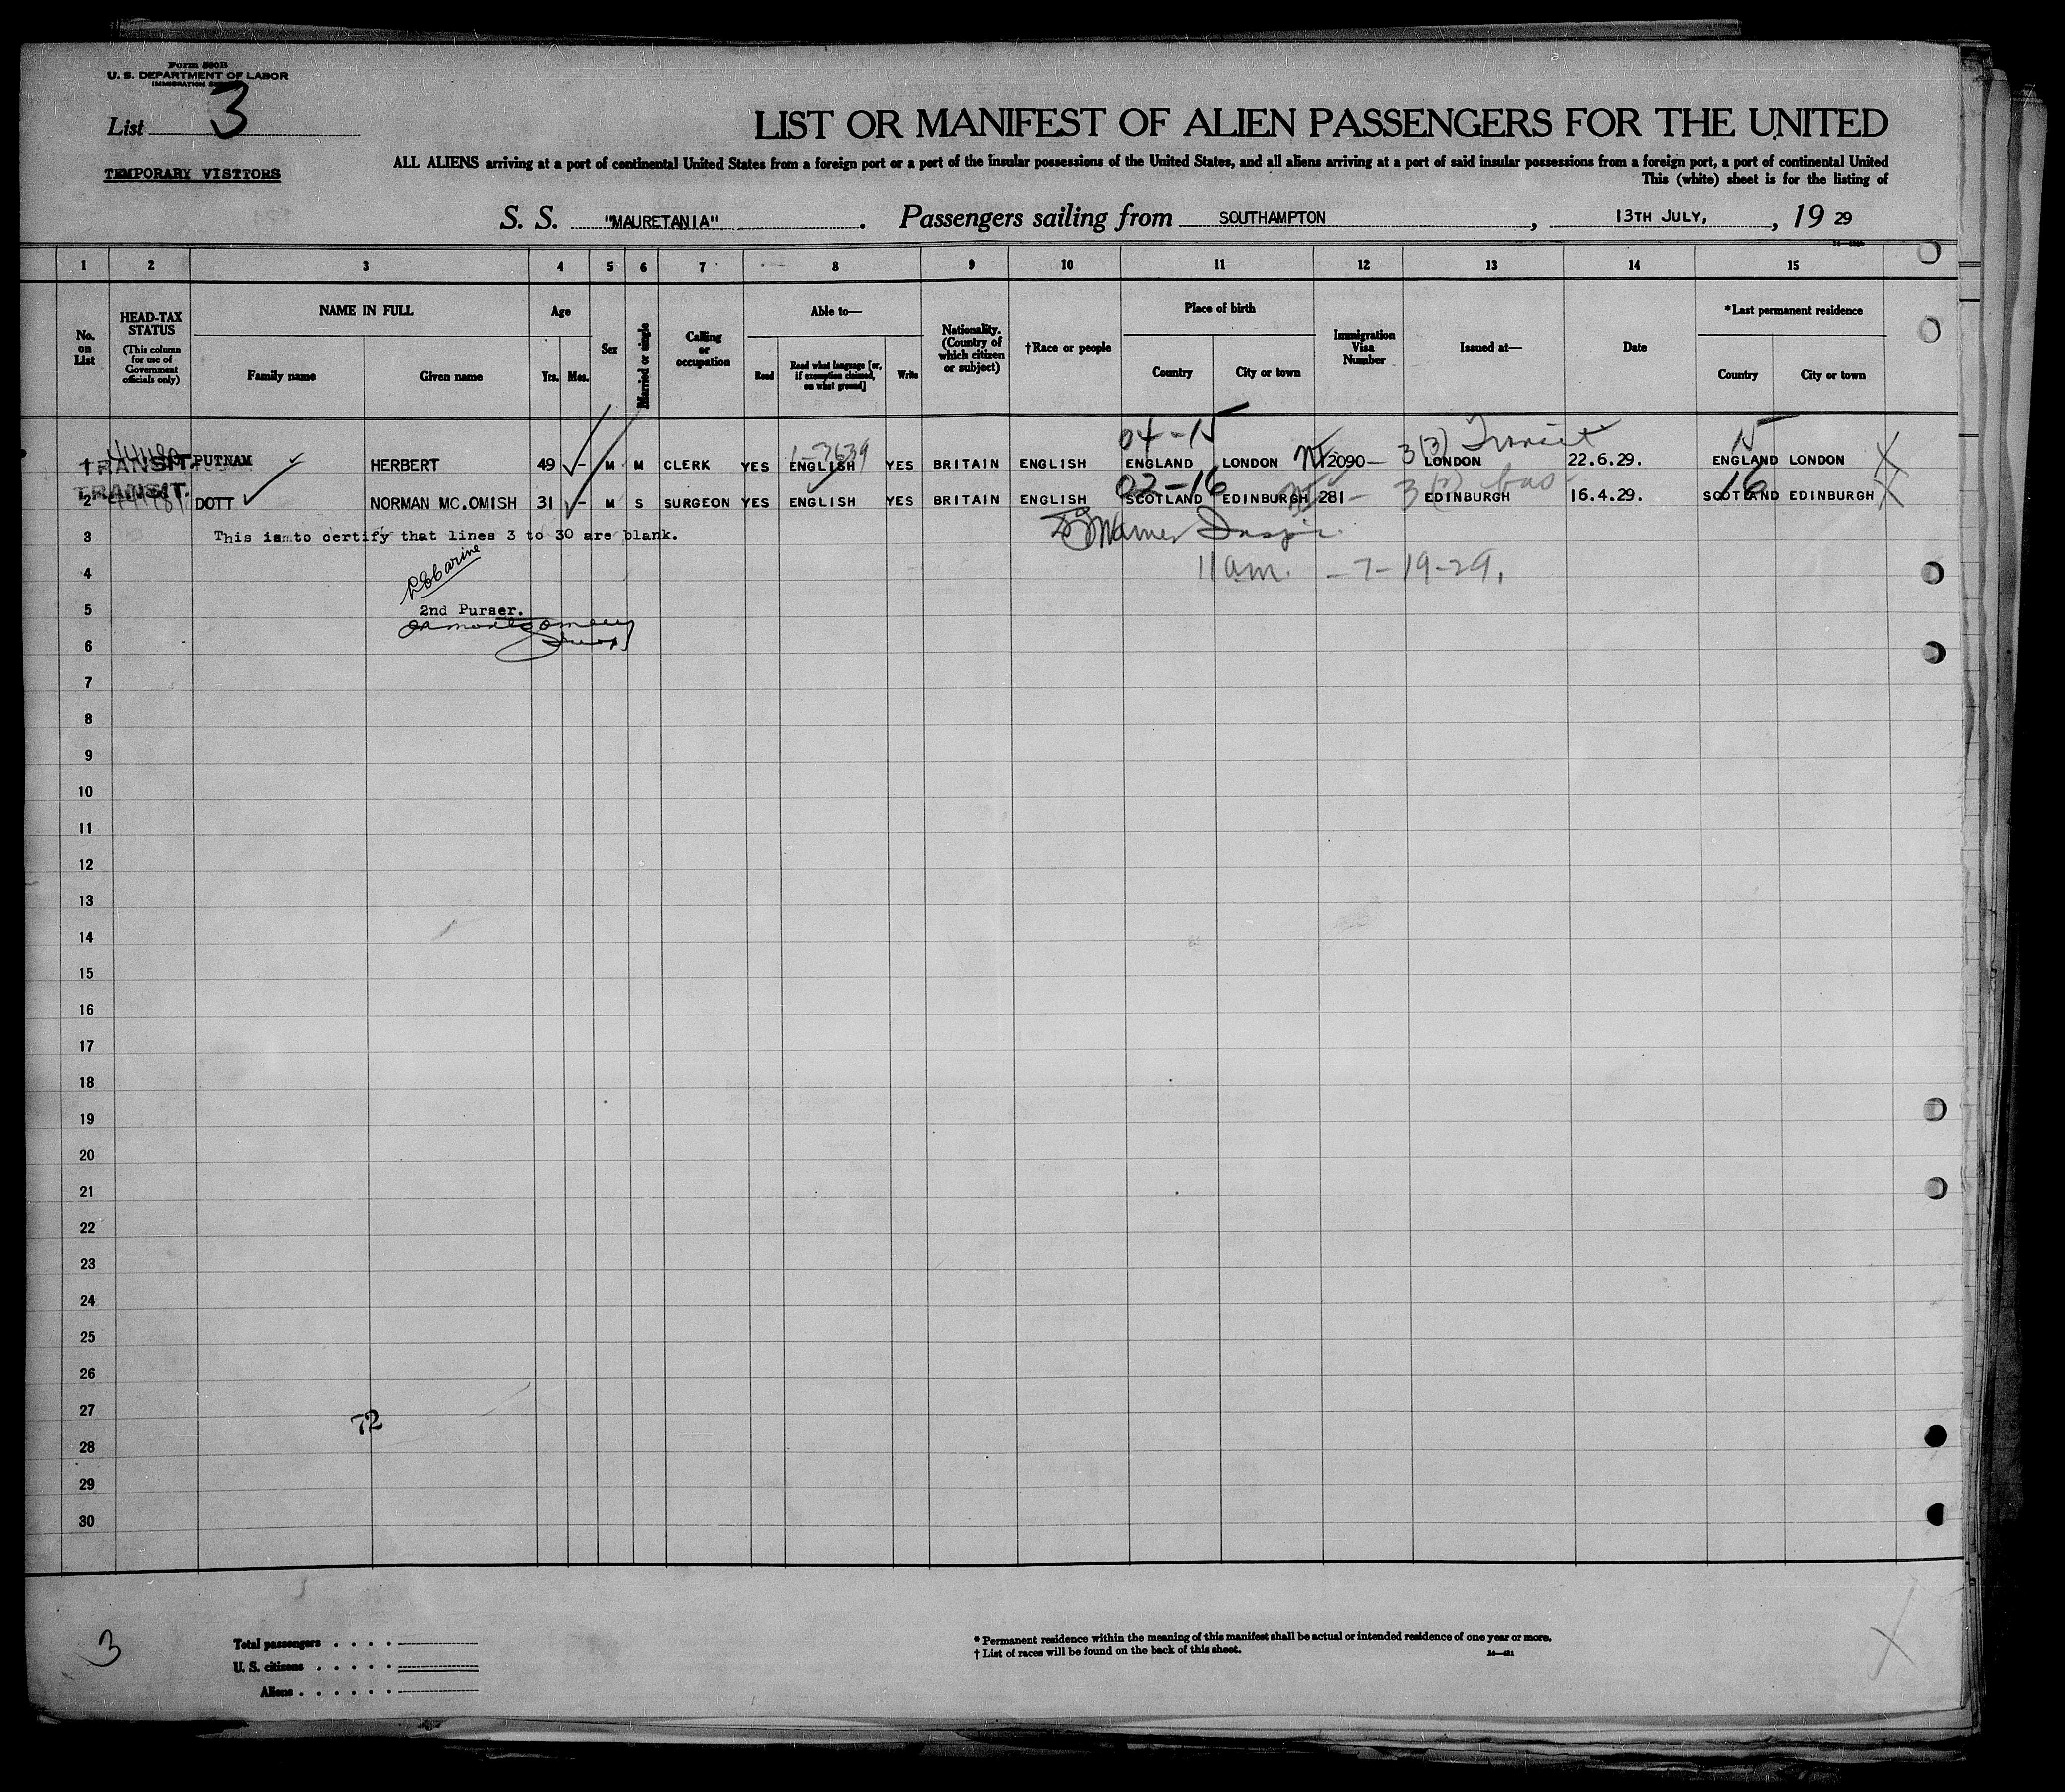 Form 500B
U. S. DEPARTMENT OF LABOR
IMMIGRATION
List 3
TEMPORARY VISITORS
LIST OR MANIFEST OF ALIEN PASSENGERS FOR THE UNITED
ALL ALIENS arriving at a port of continental United States from a foreign port or a port of the insular possessions of the United States, and all aliens arriving at a port of said insular possessions from a foreign port, a port of continental United
This (white) sheet is for the listing of
S. S. "MAURETANIA". Passengers sailing from SOUTHAMPTON, 13TH JULY, , 19 29
1 2 3 4 5 6 7 8 9 10 11 12 13 14 15
No. on List
HEAD-TAX STATUS (This column for use of Government officials only)
NAME IN FULL
Family name Given name
Age
Yrs. Mos.
Sex
Married or single
Calling or occupation
Able to—
Read Read what language [or, if exemption claimed, on what ground] Write
Nationality. (Country of which citizen or subject)
†Race or people
Place of birth
Country City or town
Immigration Visa Number
Issued at—
Date
*Last permanent residence
Country City or town
04-15 3(3) Transit 15
1-7639
1 TRANSIT. PUTNAM HERBERT 49 - M M CLERK YES ENGLISH YES BRITAIN ENGLISH ENGLAND LONDON 2090- LONDON 22.6.29. ENGLAND LONDON
02-16 3(2) 16
2 TRANSIT. DOTT NORMAN MC.OMISH 31 - M S SURGEON YES ENGLISH YES BRITAIN ENGLISH SCOTLAND EDINBURGH 281- EDINBURGH 16.4.29. SCOTLAND EDINBURGH
3 This is to certify that lines 3 to 30 are blank.
4 11am. -7-19-29.
5 2nd Purser.
6
7
8
9
10
11
12
13
14
15
16
17
18
19
20
21
22
23
24
25
26
27
72
28
29
30
3
Total passengers . . . .
U. S. citizens . . . . .
Aliens . . . . . .
* Permanent residence within the meaning of this manifest shall be actual or intended residence of one year or more.
† List of races will be found on the back of this sheet.